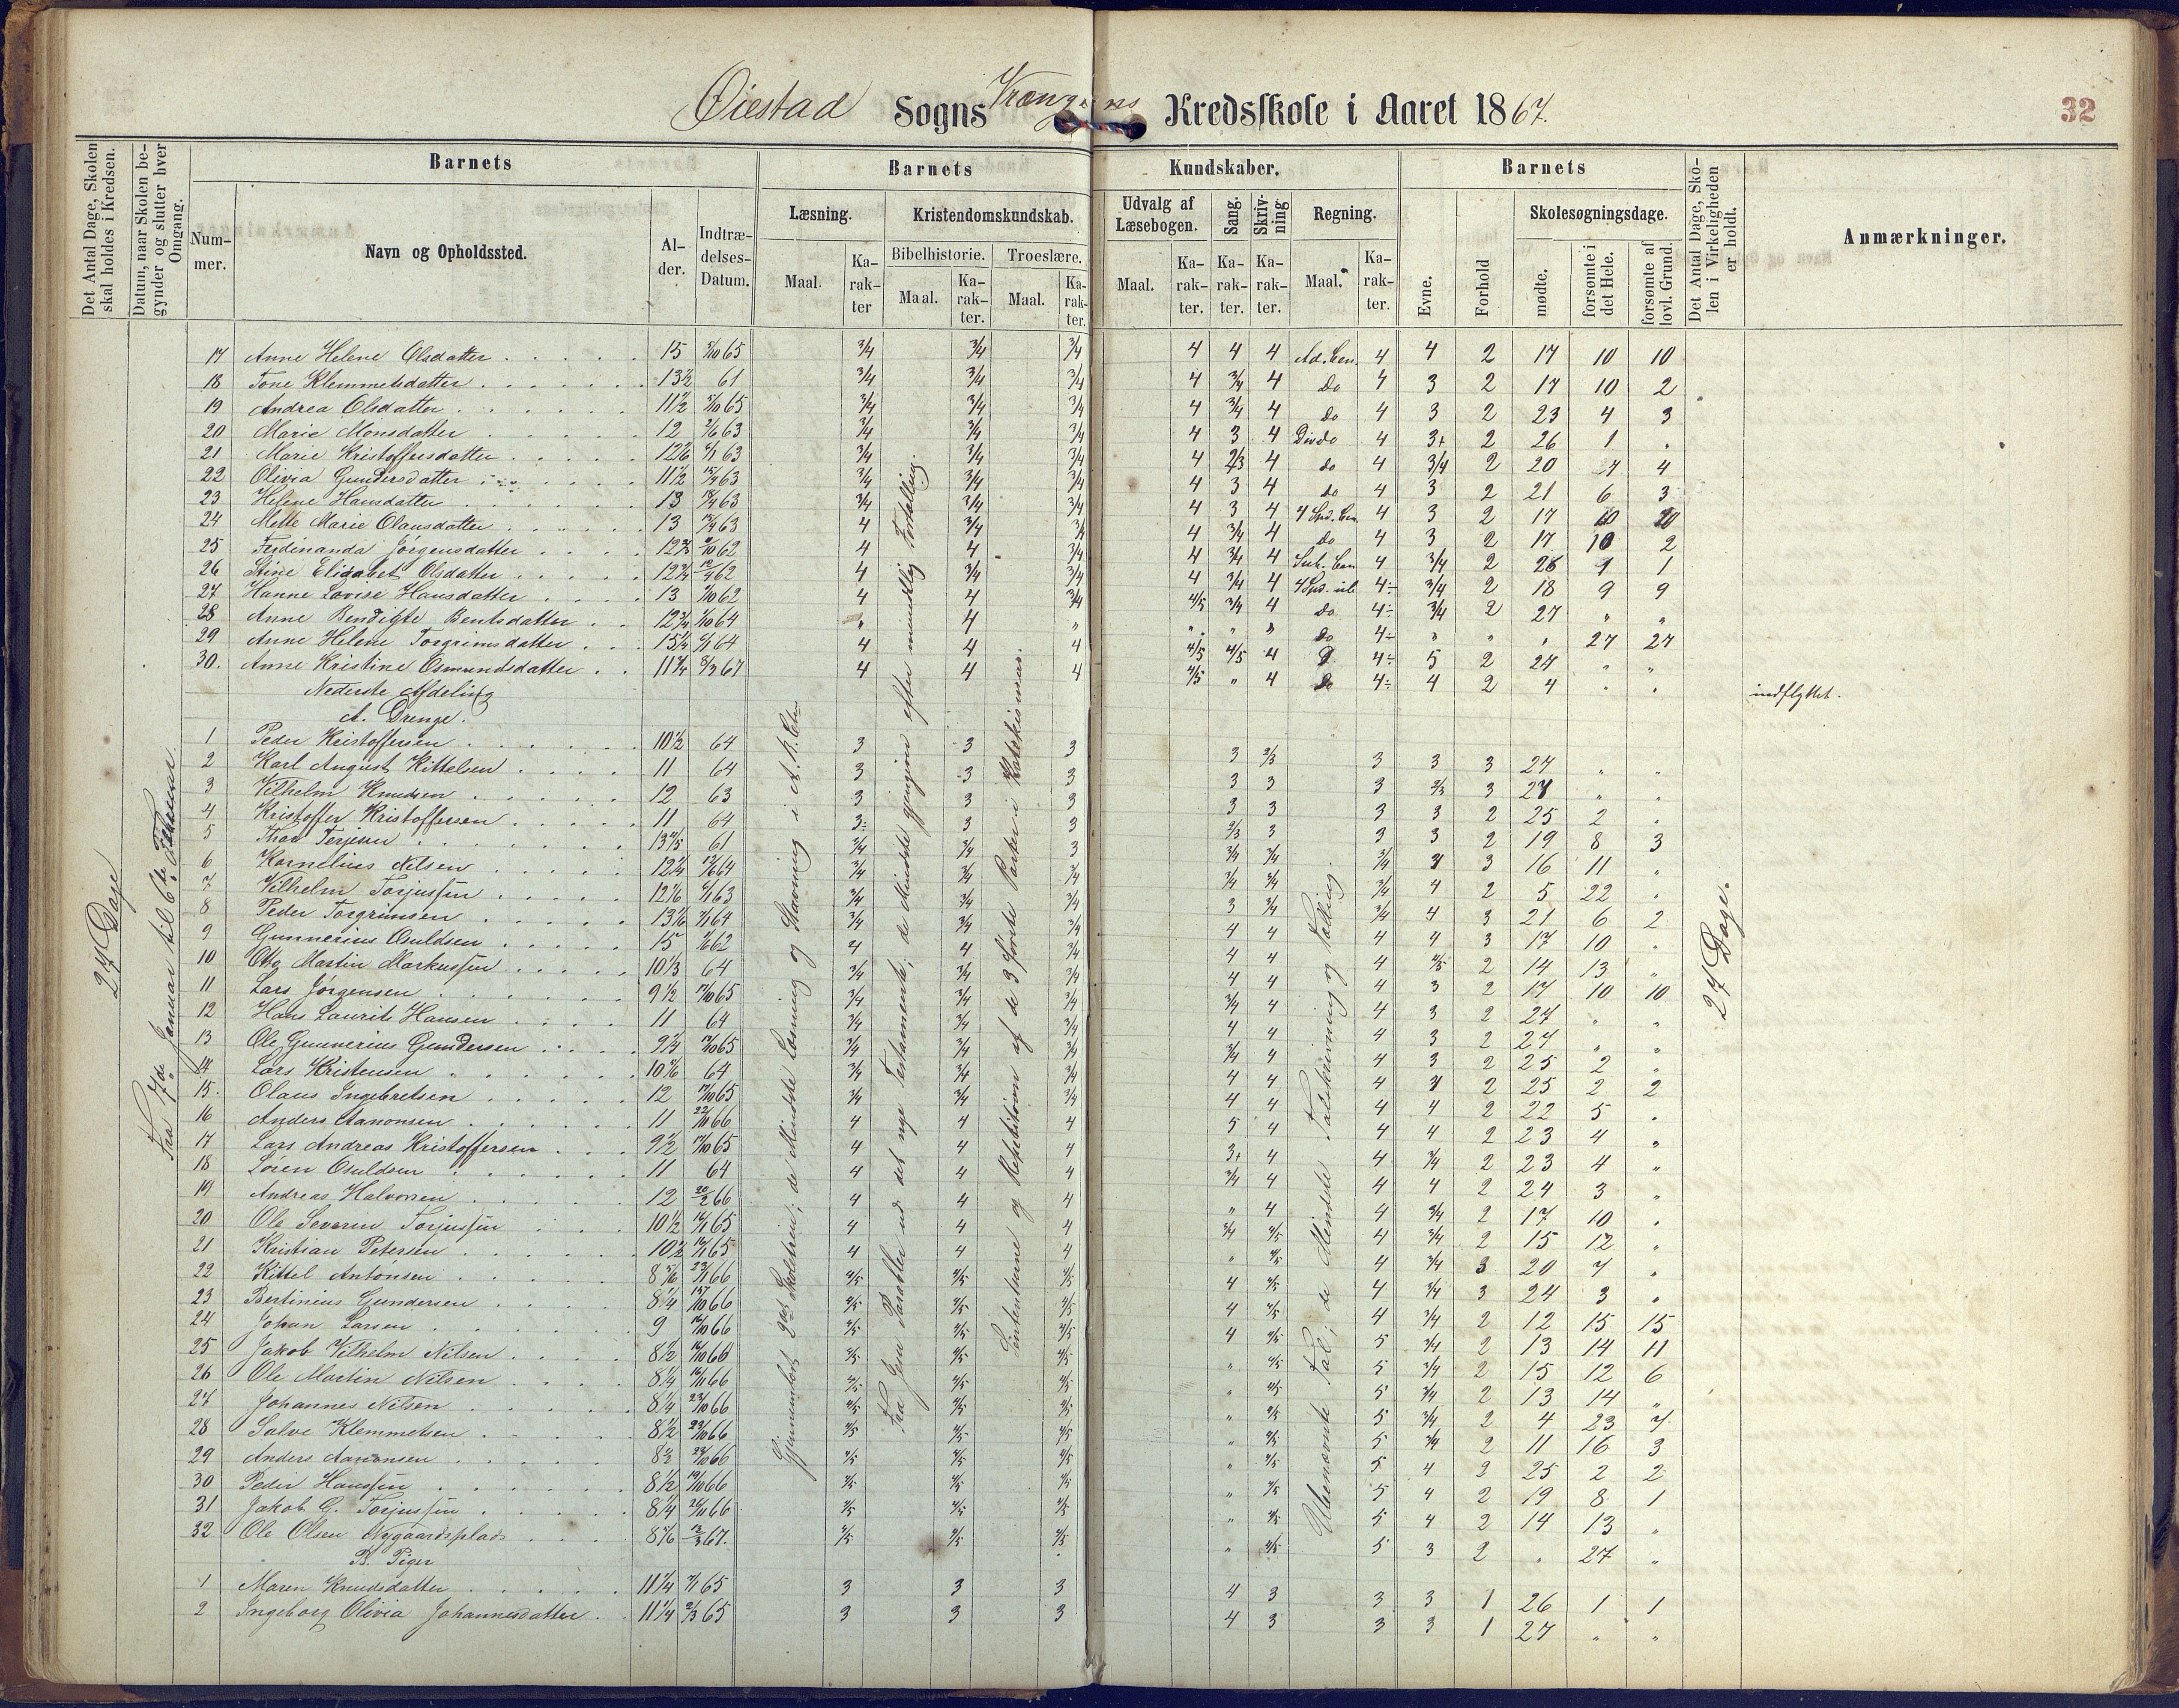 Øiestad Sogns Kredsskole i Aaret 1867.
32
Det Antal Dage, Skolen skal holdes i Kredsen.
Datum, naar Skolen begynder og slutter hver Omgang.
Barnets
Barnets
Kundskaber.
Barnets
Det Antal Dage, Skolen i Virkeligheden er holdt.
Anmærkninger.
Nummer.
Navn og Opholdssted.
Alder.
Indtrædelses-Datum.
Læsning.
Kristendomskundskab.
Udvalg af Læsebogen.
Sang.
Skrivning
Regning.
Evne.
Forhold
Skolesøgningsdage.
Bibelhistorie.
Troeslære.
Maal.
Karakter
Maal.
Karakter.
Maal.
Karakter.
Maal.
Karakter.
Karakter.
Karakter.
Maal.
Karakter.
mødte.
forsømte i det Hele.
forsømte af lovl. Grund.
27 Dage
Fra 7de Januar til 6te Februar.
17 Anne Helene Olsdatter 15 65 3/4 3/4 3/4 4 4 4 4 4 2 17 10 10
18 Tone Klemmetsdatter 13½ 61 3/4 3/4 3/4 4 3/4 4 do 4 3 2 17 10 2
19 Andrea Olsdatter 11½ 65 3/4 3/4 3/4 4 3/4 4 do 4 3 2 23 4 3
20 Marie Monsdatter 12 63 3/4 3/4 3/4 4 3 4 4 3+ 2 26 1
21 Marie Kristoffersdatter 63 3/4 3/4 3/4 4 2/3 4 do 4 3/4 2 20 4
22 Olivia Gundersdatter 11½ 63 3/4 3/4 3/4 4 3 4 do 4 3 2 21 6 3
23 Helene Hansdatter 13 63 3/4 3/4 3/4 4 3 4 4 3 2 17
24 Mette Marie Olausdatter 13 63 4 3/4 3/4 4 3/4 4 do 4 3 2 17 10 2
25 Ferdinanda Jørgensdatter 62 4 4 3/4 4 3/4 4 4 3/4 2 26 1
26 Stine Elisabet Olsdatter 62 4 3/4 3/4 4 3/4 4 4÷ 3/4 2 18 9 9
27 Hanne Lovise Hansdatter 13 62 4 4 3/4 4/5 3/4 4 do 4÷ 3/4 2 27 " "
28 Anne Bendigte Bentsdatter 64 " 4 " " " " do 4÷ " " " 27 27
29 Anne Helene Torgrimsdatter 15¼ 64 4 4 4 4/5 4/5 4 4÷ 5 2 27 " "
30. Anne Kristine Osmundsdatter 67 4 4 4 4/5 " 4 do 4÷ 4 2 4 indflyttet.
Nederste Afdeling
A. Drenge.
1 Peder Kristoffersen 10½ 64 3 3 3 3 2/3 3 3 3 27 " "
2 Karl August Kittelsen 11 64 3 3 3 3 3 3 2/3 3 " "
3 Vilhelm Knudsen 12 63 3 3 3 3 3 3 3 2 25 2
4 Kristoffer Kristoffersen 11 64 3÷ 3 3 2/3 3 3 3 2 19 8 3
5 61 3/4 3/4 3 3/4 3/4 3/4 3 16 11 "
6 Kornelius Nilsen 12¼ 64 3/4 3/4 3/4 3/4 3/4 3/4 4 2 5 22
7 Vilhelm Torjussen 63 3/4 3/4 3/4 3 3/4 3/4 4 3 21 6 2
8 Peder Torgrimsen 64 3/4 3/4 3/4 4 4 4 4 3 17 10
9 Gunnerius Osuldsen 15 62 4 4 3/4 4 4 4 4/5 2 14 13 "
10 Martin Markussen 10⅓ 64 3/4 3/4 3/4 4 4 4 3 2 17 10 10
11 Lars Jørgensen 9½ 65 3/4 3/4 3/4 3/4 4 4 3 2 27 " "
12 Hans Laurits Hansen 11 64 3/4 3/4 3/4 4 4 4 3 2 27 " "
13 Ole Gunnerius Gundersen 9¼ 65 3/4 3/4 3/4 3/4 4 4 3 2 25 2 "
14 Lars Kristensen 64 3/4 3/4 3/4 4 4 4 2 25 2 2
15. Olaus Ingebretsen 12 65 3/4 3/4 3/4 4 4 4 4 2 22 5
16 Anders Aanonsen 11 66 4 4 4 5 4 4 4 2 23 4 "
17 Lars Andreas Kristoffersen 9½ 65 4 4 4 3+ 4 4 3/4 2 23 4 "
18 Søren Osuldsen 11 64 4 4 4 3/4 4 4 4 2 24 3 "
19 Andreas Halvorsen 12 20/2 66 4 4 4 " 4 4 3/4 2 17 10
20 Ole Severin Torjussen 10½ 65 4 4 4 3/4 4/5 4 3/4 2 15 12 "
21 Kristian Petersen 10½ 65 4 4 4 " 4/5 4 3/4 3 20 7 "
22 Kittel Antonsen 66 4/5 4/5 4/5 4 4/5 4 3/4 3 24 3 "
23 Bertinius Gundersen 8¼ 66 4/5 4/5 4/5 4 4/5 4 3/4 2 12 15 15
24 Johan Larsen 9 66 4/5 4/5 4/5 4 4/5 5 3/4 2 13 14 11
25 Jakob Vilhelm Nilsen 8½ 66 4/5 4/5 4/5 " 4/5 5 3/4 2 15 12 6
26 Ole Martin Nilsen 8¼ 66 4/5 4/5 4/5 " 4/5 5 3/4 2 13 14 "
27 Johannes Nilsen 8¼ 66 4/5 4/5 4/5 " 4/5 5 3/4 2 4 23 7
28 Salve Klemmetsen 8½ 66 4/5 4/5 4/5 " 4/5 5 3/4 2 11 16 3
29 Anders Aanonsen 66 4/5 4/5 4/5 " 4/5 5 4 2 25 2 2
30 Peder Hanssen 8½ 66 4/5 4/5 4/5 " 4/5 5 4 2 19 8 1
31 Jakob G. Torjussen 8¼ 66 4/5 4/5 4/5 " 4/5 5 4 2 14 13 "
32 Ole Olsen Nygaardsplads 67. 4/5 4/5 4/5 " 4/5 5 3 2 27 "
B. Piger
1 Maren Knudsdatter 11¼ 65 3 3 3 4 3 3 3 1 26 1 1
2 Ingeborg Olivia Johannesdatter 11¼ 65 3 3 3 4 3 3 3 1 27 " "
Gjennemlæst Skoletrin; de Mindste Læsning og Stavning i A.B.C.
Fra Jesu Parabler ud det nye Testamente; de Mindste gjengiven efter mundtlig Fortælling.
Sententserne og Repetitionen af de 3 første Parter i Katekismus.
Ubenævnte Tal; de Mindste Talskrivning og Tælling.
27 Dage.